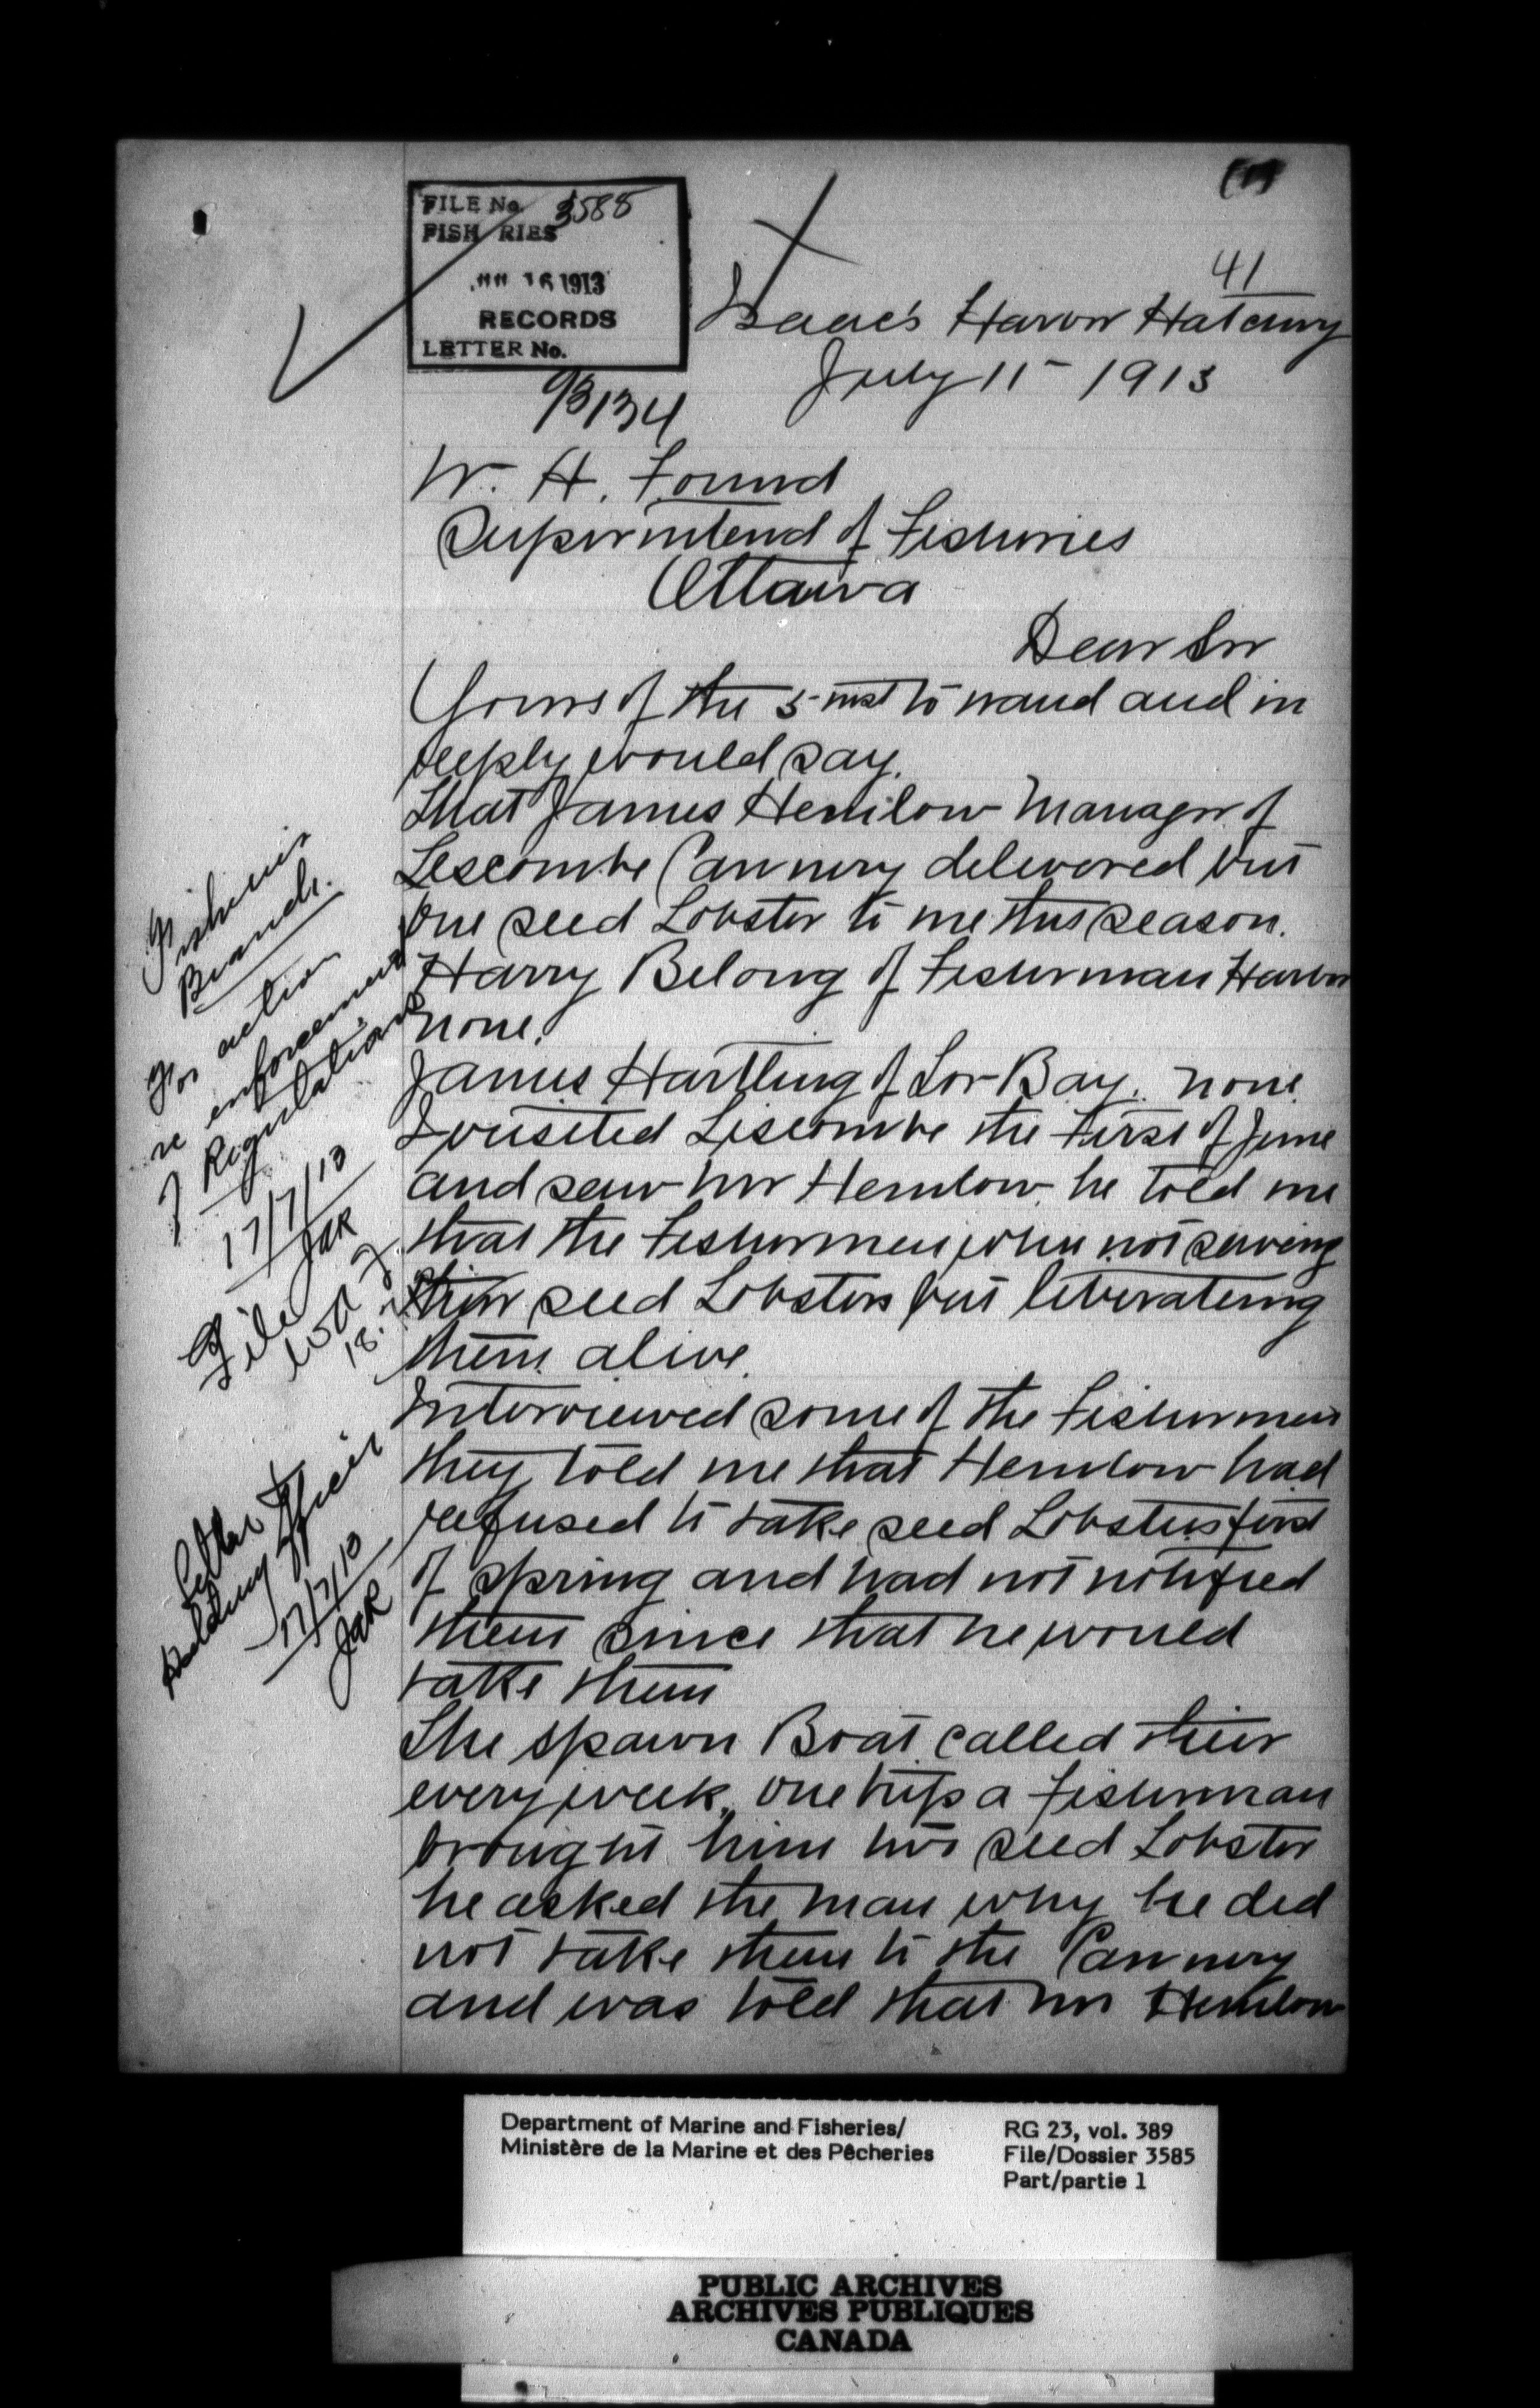 (1)
FILE No. 3585
FISHERIES
16 1913
RECORDS
LETTER No.
93134
41
Isaac's Harbor Hatchery
July 11 - 1913
W. H. Found
Superintend of Fisheries
Ottawa
Dear Sir
Yours of the 5 inst to hand and in
reeply would say.
that James Hemlow Manager of
Lescombe Cannery delivered but
one seed Lobster to me this season.
Harry Belong of Fisherman Harbor
none.
James Hartling of Lor Bay. none.
I visited Liscombe the first of June
and saw Mr Hemlow he told me
that the Fishermen when not saveing
their seed Lobsters but liberateing
them alive.
Interviewed some of the Fishermen
they told me that Hemlow had
reefused to take seed Lobsters first
of spring and had not notified
them since that he would
take them
The spawn Boat called their
every week. one trip a fisherman
brought him two seed Lobster
he asked the man why he did
not take them to the Cannery
and was told that Mr Hemlow
Fisheries
Branch.
For action
re enforcement
of Regulations
17/7/13
JAR
File
18.
Letter to
Holding Officer
17/7/13
JAR
Department of Marine and Fisheries/
Ministère de la Marine et des Pêcheries
RG 23, vol. 389
File/Dossier 3585
Part/partie 1
PUBLIC ARCHIVES
ARCHIVES PUBLIQUES
CANADA